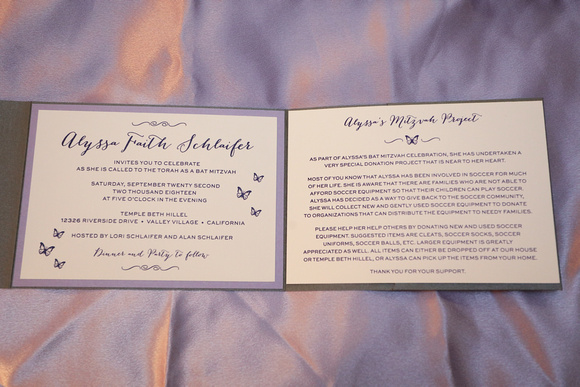 Alyssa Faith Schlaifer
INVITES YOU TO CELEBRATE
AS SHE IS CALLED TO THE TORAH AS A BAT MITZVAH
SATURDAY, SEPTEMBER TWENTY SECOND
TWO THOUSAND EIGHTEEN
AT FIVE O'CLOCK IN THE EVENING
TEMPLE BETH HILLEL
12326 RIVERSIDE DRIVE • VALLEY VILLAGE • CALIFORNIA
HOSTED BY LORI SCHLAIFER AND ALAN SCHLAIFER
Dinner and Party to follow
Alyssa's Mitzvah Project
AS PART OF ALYSSA'S BAT MITZVAH CELEBRATION, SHE HAS UNDERTAKEN A
VERY SPECIAL DONATION PROJECT THAT IS NEAR TO HER HEART.
MOST OF YOU KNOW THAT ALYSSA HAS BEEN INVOLVED IN SOCCER FOR MUCH
OF HER LIFE. SHE IS AWARE THAT THERE ARE FAMILIES WHO ARE NOT ABLE TO
AFFORD SOCCER EQUIPMENT SO THAT THEIR CHILDREN CAN PLAY SOCCER.
ALYSSA HAS DECIDED AS A WAY TO GIVE BACK TO THE SOCCER COMMUNITY,
SHE WILL COLLECT NEW AND GENTLY USED SOCCER EQUIPMENT TO DONATE
TO ORGANIZATIONS THAT CAN DISTRIBUTE THE EQUIPMENT TO NEEDY FAMILIES.
PLEASE HELP HER HELP OTHERS BY DONATING NEW AND USED SOCCER
EQUIPMENT. SUGGESTED ITEMS ARE CLEATS, SOCCER SOCKS, SOCCER
UNIFORMS, SOCCER BALLS, ETC. LARGER EQUIPMENT IS GREATLY
APPRECIATED AS WELL. ALL ITEMS CAN EITHER BE DROPPED OFF AT OUR HOUSE
OR TEMPLE BETH HILLEL, OR ALYSSA CAN PICK UP THE ITEMS FROM YOUR HOME.
THANK YOU FOR YOUR SUPPORT.